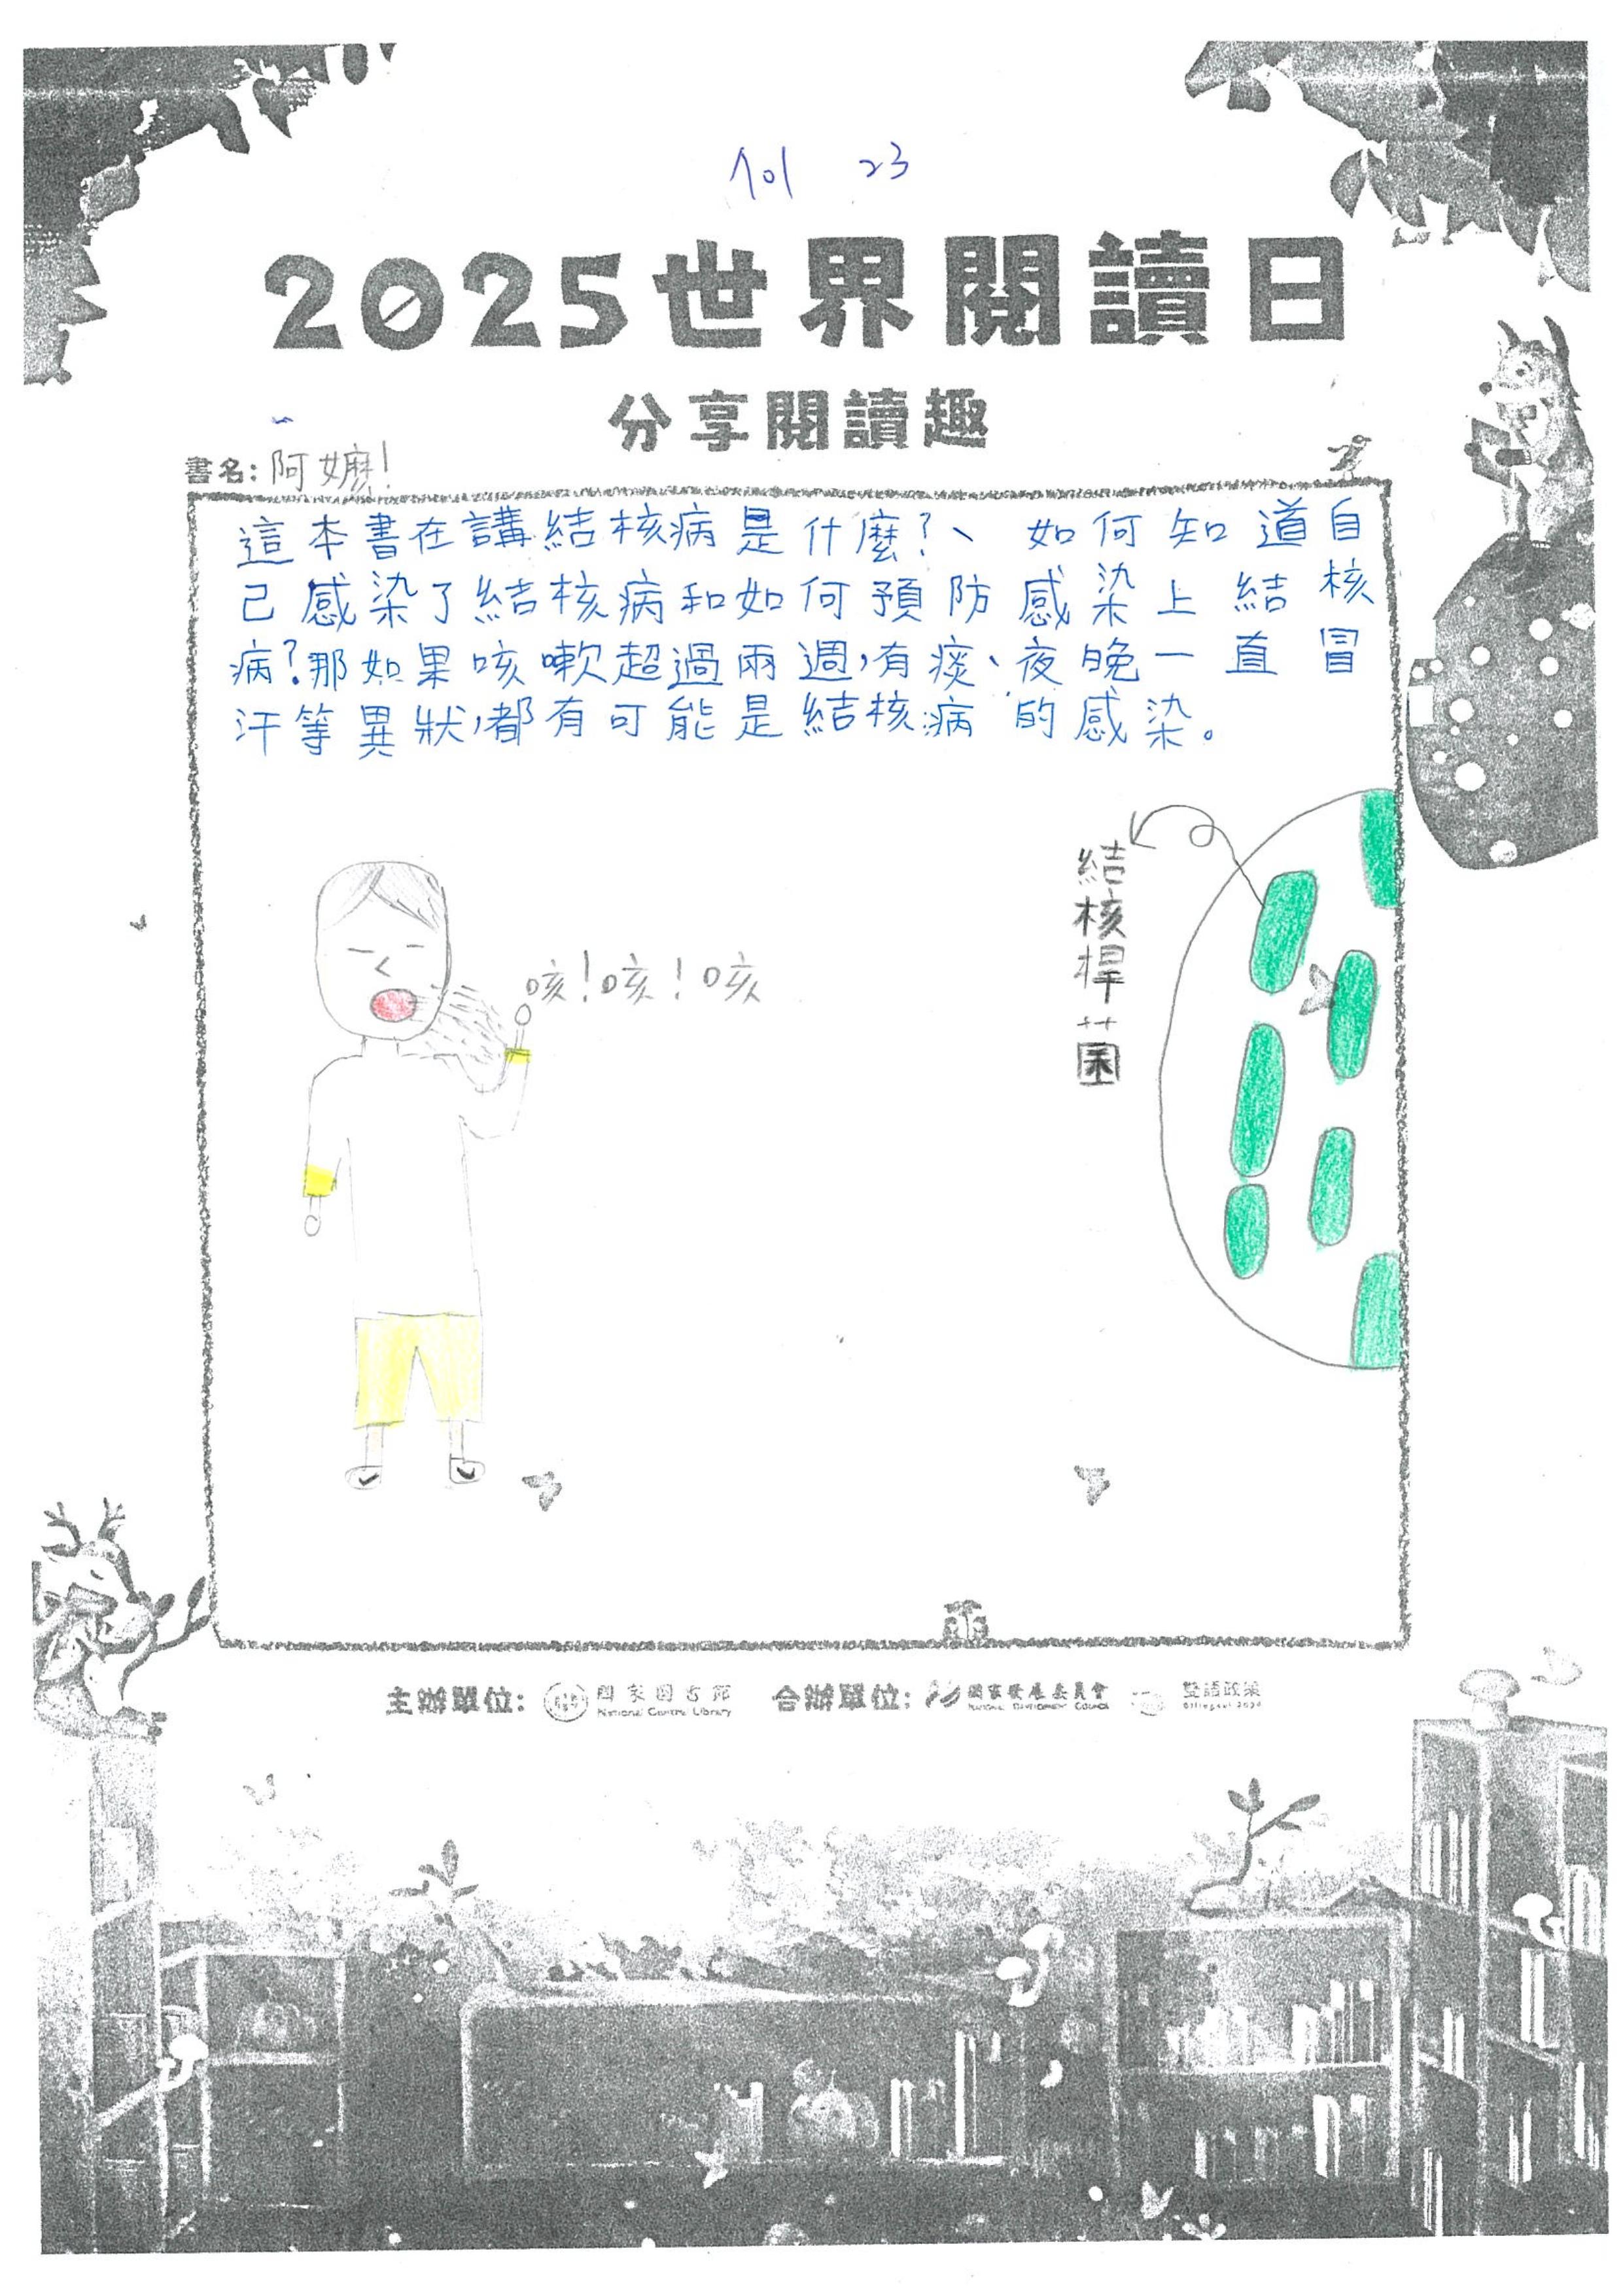 701 23
2025世界閱讀日
分享閱讀趣
書名:阿嬤!
這本書在講結核病是什麼?、如何知道自
己感染了結核病和如何預防感染上結核
病?那如果咳嗽超過兩週,有痰、夜晚一直冒
汗等異狀,都有可能是結核病的感染。
咳!咳!咳
結核桿菌
主辦單位: 國家圖書館 National Central Library 合辦單位: 國家發展委員會 NATIONAL DEVELOPMENT COUNCIL 雙語政策 Bilingual 2030